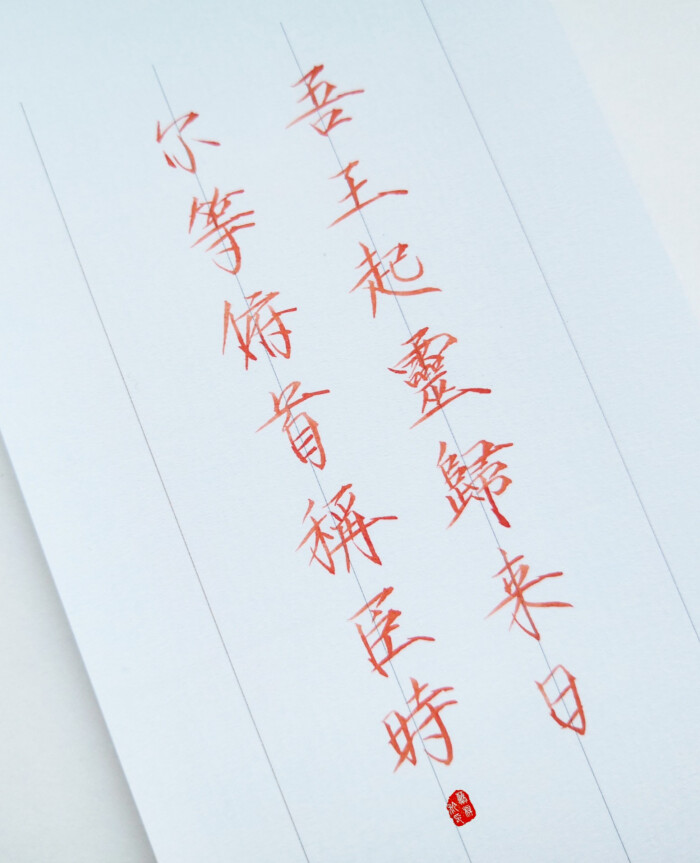 吾王起靈歸来日
尔等俯首稱臣時